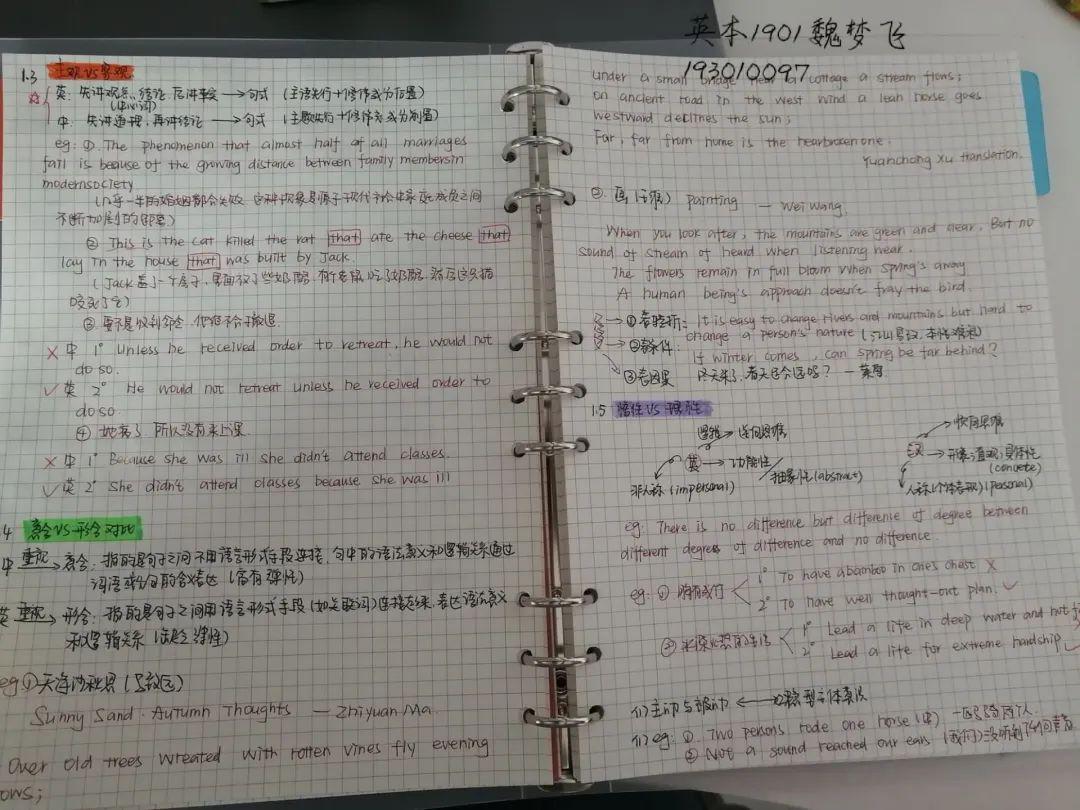 英本1901魏梦飞
193010097
1.3 主观VS客观
英:先讲观点、结论 后讲事实→句式(主语先行+修饰成分后置)
中:先讲道理,再讲结论→句式(主题先行+修饰成分前置)
eg: ①. The phenomenon that almost half of all marriages
fail is because of the growing distance between family membersin
modernsociety
不断加剧的距离)
② This is the cat killed the rat that ate the cheese that
lay in the house that was built by Jack.
咬死了它)
他不会撤退.
× 中 1° Unless he received order to retreat, he would not
do so.
✓ 英 2° He would not retreat unless he received order to
do so.
④ 她病了,所以没有来上课.
× 中 1° Because she was ill she didn't attend classes.
✓ 英 2° She didn't attend classes because she was ill
4 意合VS形合对比
中 重视→意合:指的是句子之间不用语言形式手段连接,句中的语法意义和逻辑关系通过
词语或分句的含义表达(富有弹性)
英 重视→形合:指的是句子之间用语言形式手段(如关联词)连接起来,表达语法意义
和逻辑关系(缺乏弹性)
eg ①天净沙秋思(马致远)
Sunny Sand · Autumn Thoughts — Zhiyuan Ma
Over old trees wreated with rotten vines fly evening
ows;
under a small bridge near a cottage a stream flows;
on ancient road in the west wind a lean horse goes
westward declines the sun;
Far, far from home is the heartbroken one.
Yuanchong Xu translation.
②. 画(王维) painting — Wei Wang.
When you look after, the mountains are green and clear, But no
sound of stream of heard when listening near.
The flowers remain in full bloom when spring's away
A human being's approach doesn't fray the bird.
①表转折: It is easy to change rivers and mountains but hard to
change a person's nature (江山易改,本性难移)
②表条件: If winter comes, can spring be far behind?
③表因果 冬天来了,春天还会远吗? — 雪莱
1.5 悟性VS理性
逻辑→逆向思维
英→功能性
非人称(impersonal) 抽象性(abstract)
汉→形象、直观、具体性
(concrete)
人称(个体表现)(personal)
eg: There is no difference but difference of degree between
different degrees of difference and no difference.
eg: ① 胸有成竹 1° To have abamboo in one's chest ×
2° To have well thought-out plan. ✓
② 水深火热的生活 1° Lead a life in deep water and hot
2° Lead a life for extreme hardship ✓
(1) 主动与被动
(1) eg: ①. Two persons rode one horse (中) 一匹马骑两人.
② Not a sound reached our ears (我们)没听到任何声音